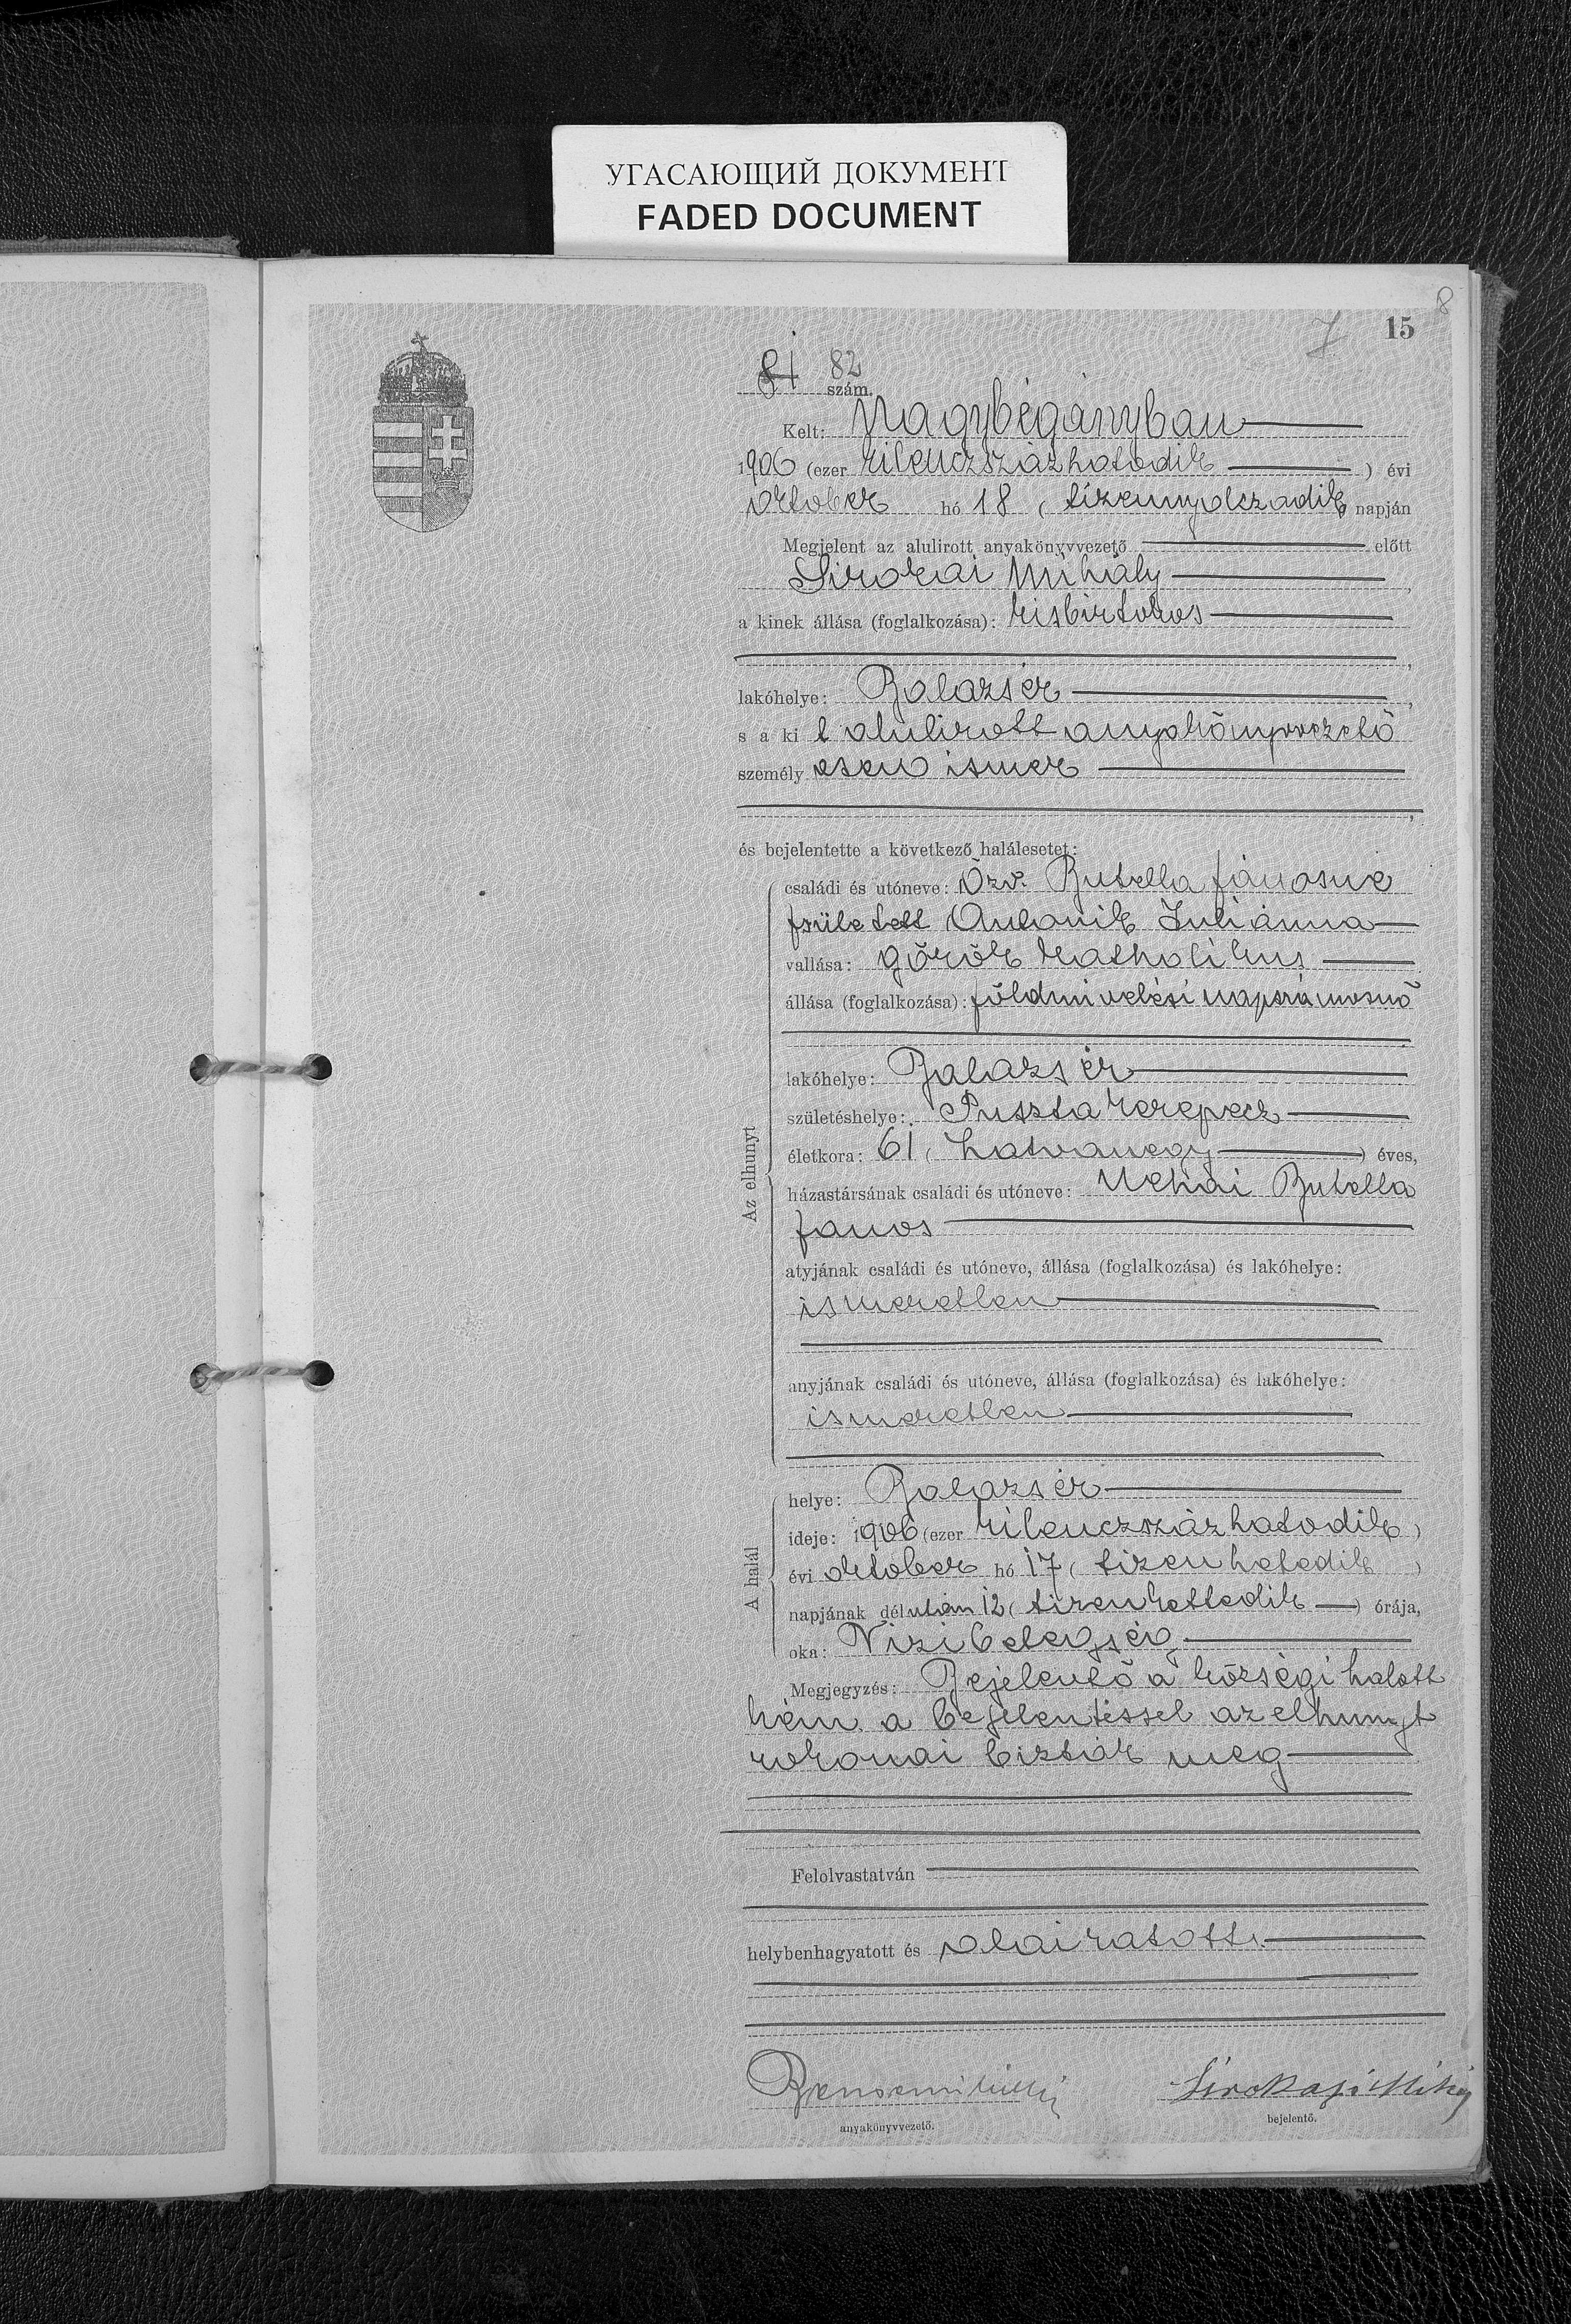 УГАСАЮЩИЙ ДОКУМЕНТ
FADED DOCUMENT
8
7 15
81 82
szám.
Kelt: Nagybégányban
1906 (ezer kilenczszázhatodik ) évi
október hó 18 ( tizennyolczadik napján
Megjelent az alulirott anyakönyvvezető előtt
Sirokai Mihály ,
a kinek állása (foglalkozása): kisbirtokos
,
lakóhelye: Balazsér ,
s a ki t alulirott anyakönyvvezető
személy esen ismer
,
és bejelentette a következő halálesetet:
családi és utóneve: Özv. Butella Jánosné
született Antonik Juliánna
vallása: görök katholikus
állása (foglalkozása): földmivelési napszámosnő
lakóhelye: Balazsér
születéshelye: Pusztakerepecz
életkora: 61 ( hatvanegy ) éves,
házastársának családi és utóneve: Néhai Butella
János
atyjának családi és utóneve, állása (foglalkozása) és lakóhelye:
ismeretlen
anyjának családi és utóneve, állása (foglalkozása) és lakóhelye:
ismeretlen
Az elhunyt
helye: Balazsér
ideje: 1906 (ezer kilenczszázhatodik )
évi október hó 17 ( tizenhetedik )
napjának délután 12 ( tizenkettedik ) órája,
oka: Vizibetegség
A halál
Megjegyzés: Bejelentő a községi halott
kém. a bejelentéssel az elhunyt
rokonai bizták meg
Felolvastatván
helybenhagyatott és aláiratott.
Sirokaji Mihály
anyakönyvvezető.
bejelentő.